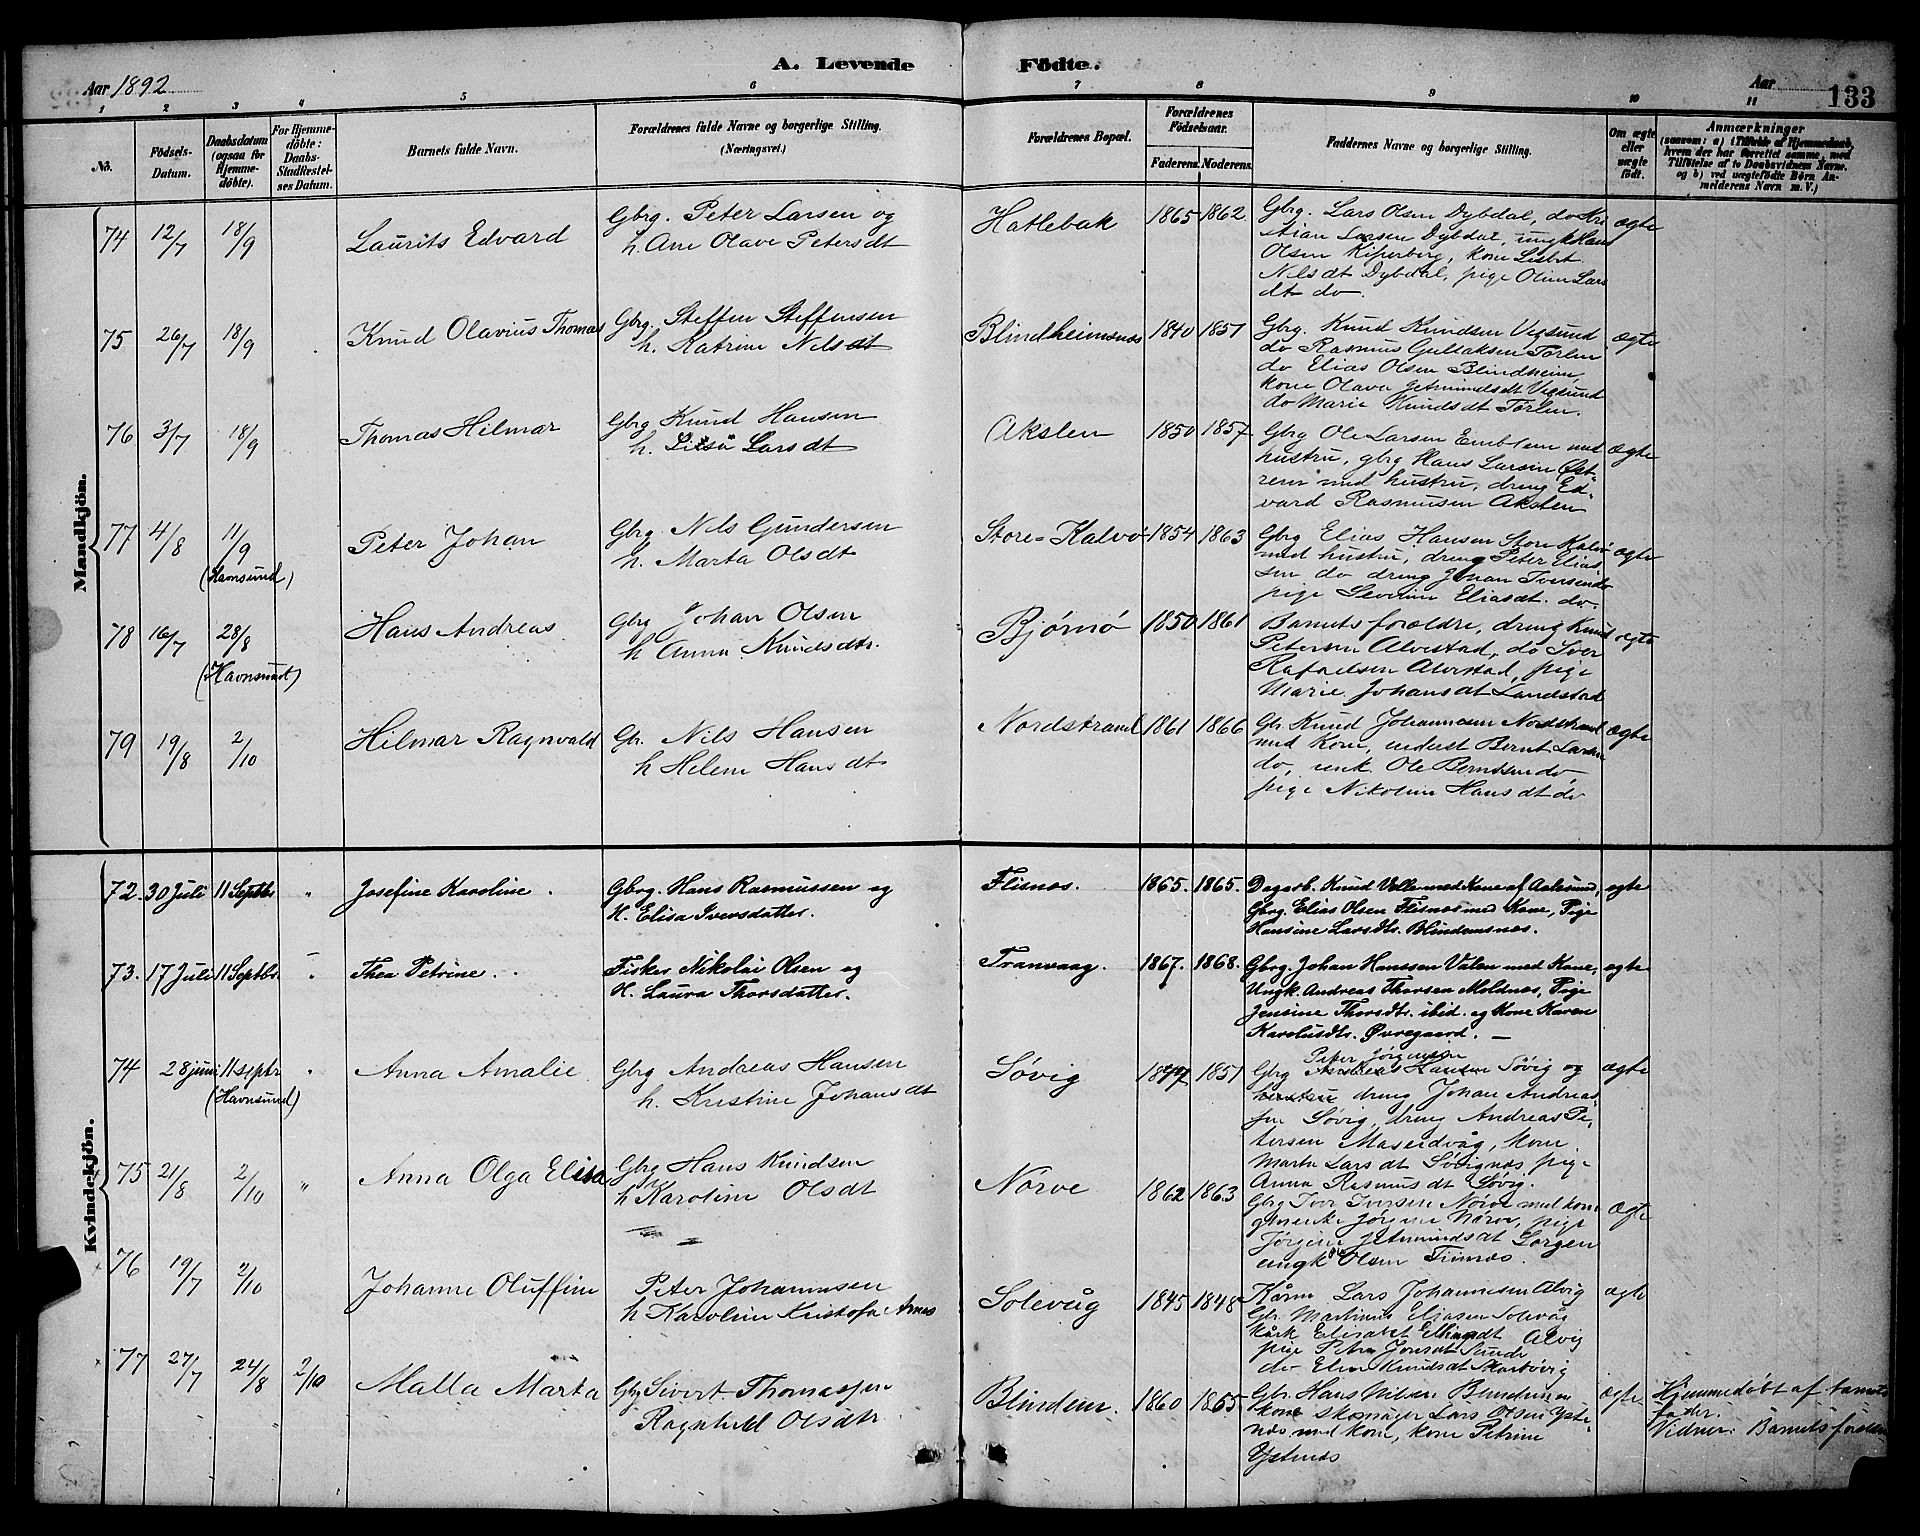 Aar 1892
A. Levende Födte.
Aar 133
1 2 3 4 5 6 7 8 9 10 11
No.
Födsels-Datum.
Daabsdatum (ogsaa for Hjemme-døbte).
For Hjemme-döbte: Daabs-Stadfæstel-ses Datum.
Barnets fulde Navn.
Forældrenes fulde Navne og borgerlige Stilling. (Næringsvei.)
Forældrenes Bopæl.
Forældrenes Födselsaar.
Faderens. Moderens.
Faddernes Navne og borgerlige Stilling.
Om ægte eller uægte født.
Anmærkninger
(saasom: a) i Tilfælde af Hjemmedaab,
hvem der har forrettet samme, med
Tilföielse af to Daabsvidners Navne.
og b) ved uægtefödte Børn An-
melderens Navn m. V.)
Mandkjön.
74 12/7 18/9 Laurits Edvard
Gbrg. Peter Larsen og
h. Ane Olave Petersdt
Hatlebak 1865 1862
Gbrg. Lars Olsen Dybdal, do Kri
stian Larsen Dybdal, ungk Hans
Olsen Kiperberg, kone Lisbet
Nilsdt Dybdal, pige Oline Lars
dt do.
ægte
75 26/7 18/9 Knud Olavius Thomas
Gbrg. Steffen Steffensen
h. Katrine Nilsdt
Blindheimsnes 1840 1851
Gbrg. Knud Knudsen Vegsund
do Rasmus Guttaksen Tørlen
do Elias Olsen Blindheim,
kone Olava Jetmundsdt Vegsund
do Marie Knudsdt Tørlen.
ægte
76 3/7 18/9 Thomas Hilmar
Gbrg Knud Hansen
h. Larsdt
Akslen 1850 1857
Gbrg Ole Larsen Emblem med
hustru, gbrg Hans Larsen Øst-
rem med hustru, dreng Ed-
vard Rasmusen Akslen
ægte
77 4/8 11/9 (Havnsund) Peter Johan
Gbrg. Nils Gundersen
h. Marta Olsdt
Store-Kalvø 1854 1863
Gbrg Elias Hansen Store Kalvø
med hustru, dreng Peter Elias-
sen do dreng Johan Iversen do
pige Severine Eliasdt. do.
ægte
78 16/7 28/8 (Havnsund) Hans Andreas
Gbrg Johan Olsen
h Anna Knudsdtr.
Bjørnø 1850 1861
Barnets forældre, dreng Knud
Petersen Alvestad, do Iver
Rafaelsen Alvestad, pige
Marie Johansdt Landstad
ægte
79 19/8 2/10 Hilmar Ragnvald
Gbr. Nils Hansen
h Helene Hansdt
Nordstrand 1861 1866
Gbr. Knud Johannesen Nordstrand
med kone, inderst Bernt Larsen
do, unk. Ole Berntsen do
pige Nikoline Hansdt do
ægte
Kvindekjön.
72. 30 Juli 11 Septbr " Josefine Karoline.
Gbrg. Hans Rasmussen og
H. Elisa Iversdatter.
Flisnes. 1865. 1865.
Dagarb. Knud Valle med Kone af Aalesund,
Gbrg. Elias Olsen Flisnes med Kone, Pige
Hansine Larsdtr. Blindemsnes.
ægte
73. 17 Juli 11 Septbr. " Thea Petrine.
Fisker Nikolai Olsen og
H. Laura Thorsdatter.
Tranvaag. 1867. 1868.
Gbrg. Johan Hanssen Valen med Kone,
Ungk. Andreas Thorsen Moldnes, Pige
Jensine Thorsdtr. ibid. og Kone Karen
Karolusdtr. Øvregaard. —
ægte
74 28 juni 11 septbr " (Havnsund) Anna Amalie
Gbrg Andreas Hansen
h. Kristine Johansdt
Søvig 1851
Peter Jørgensen
Gbrg Andreas Hansen Søvig og
hustru dreng Johan Andreas-
sen Søvig, dreng Andreas Pe-
tersen Maseidvåg, kone
Marta Larsdt Søvignes pige
Anna Rasmusdt Søvig.
ægte
75 21/8 2/10 " Anna Olga Elisa
Gbrg Hans Knudsen
h Karoline Olsdt
Nørve 1862 1863
Gbrg Iver Iversen Nørve med kone
Jørgine Nørve, pige
Jørgine Jetmundsdt Gorgen
ungk Ole Olsen
ægte
76 19/7 2/10 Johanne Oluffine
Peter Johannesen
h Karoline Kristofa Arnes
Solevåg 1845 1848
Lars Johannesen Alvig
Gbr. Martinus Eliasen Solevåg
Elisabet Alvig
pige Petra Jonsdt Sunde
do Eline Knudsdt
ægte
77 27/7 24/8 2/10 Malla Marta
Gbrg Sivert Thomassen
Ragnhild Olsdtr.
Blindem. 1860 1865
Gbr. Hans Nilsen Blindem
kone skomager Lars Olsen Yste-
nes med kone, kone Petrine
Ystenes
ægte
Hjemmedøbt af barnets
fader.
Vidner: Barnets forældre